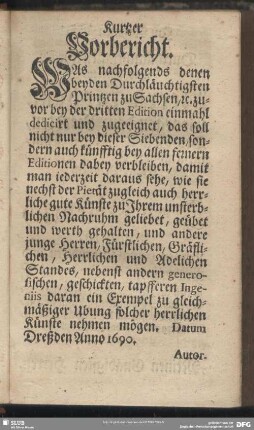 Kurtzer
Vorbericht.
WAs nachfolgends denen
beyden Durchläuchtigsten
Printzen zu Sachsen, ꝛc. zu-
vor bey der dritten Edition einmahl
dedicirt und zugeeignet, das soll
nicht nur bey dieser Siebenden, son-
dern auch künfftig bey allen fernern
Editionen dabey verbleiben, damit
man iederzeit daraus sehe, wie sie
nechst der Pietät zugleich auch herr-
liche gute Künste zu Ihrem unsterb-
lichen Nachruhm geliebet, geübet
und werth gehalten, und andere
junge Herren, Fürstlichen, Gräfli-
chen, Herrlichen und Adelichen
Standes, nebenst andern genero-
sischen, geschickten, tapfferen Inge-
niis daran ein Exempel zu gleich-
mäßiger Ubung solcher herrlichen
Künste nehmen mögen. Datum
Dreßden Anno 1690.
Autor.
SLUB
DFG